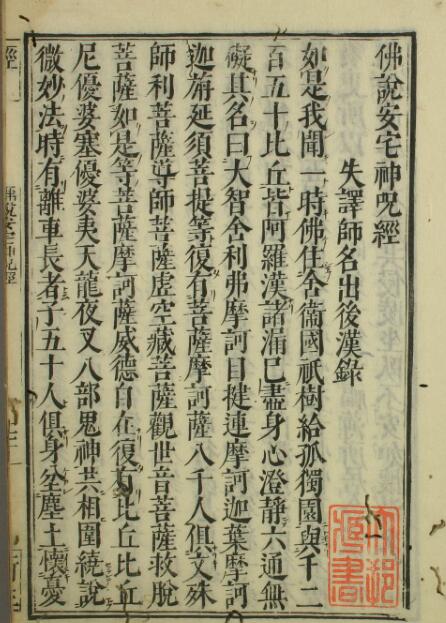 佛說安宅神呪經
失譯師名出後漢錄
如是我聞一時佛住舍衞國祇樹給孤獨園與千二
百五十比丘皆阿羅漢諸漏已盡身心澄靜六通無
礙其名曰大智舍利弗摩訶目揵連摩訶迦葉摩訶
迦旃延須菩提等復有菩薩摩訶薩八千人俱文殊
師利菩薩導師菩薩虛空藏菩薩觀世音菩薩救脫
菩薩如是等菩薩摩訶薩威德自在復有比丘比丘
尼優婆塞優婆夷天龍夜叉八部鬼神共相圍繞說
微妙法時有離車長者子五十人俱身坌塵土懷憂
經
佛說安宅神呪經